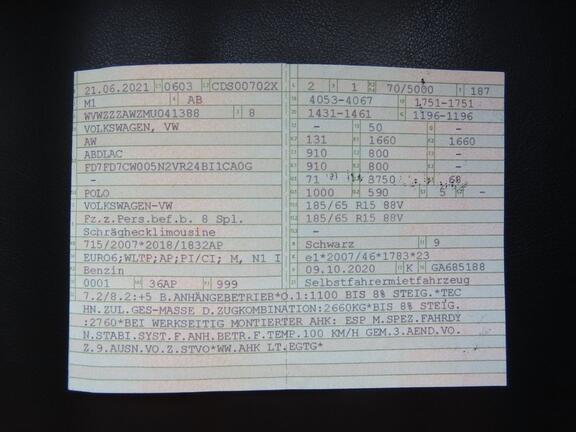 21.06.2021 0603 CDS00702X
M1 AB
WVWZZZAWZMU041388 8
VOLKSWAGEN, VW
AW
ABDLAC
FD7FD7CW005N2VR24BI1CA0G
-
POLO
VOLKSWAGEN-VW
Fz.z.Pers.bef.b. 8 Spl.
Schräghecklimousine
715/2007*2018/1832AP
EURO6;WLTP;AP;PI/CI; M, N1 I
Benzin
0001 36AP 999
2 1 70/5000 187
4053-4067 1751-1751
1431-1461 1196-1196
- 50 -
131 1660 1660
910 800 -
910 800 -
71 8750 68
1000 590 5 -
185/65 R15 88V
185/65 R15 88V
-
Schwarz 9
e1*2007/46*1783*23
09.10.2020 K GA685188
Selbstfahrermietfahrzeug
7.2/8.2:+5 B.ANHÄNGEBETRIEB*O.1:1100 BIS 8% STEIG.*TEC
HN.ZUL.GES-MASSE D.ZUGKOMBINATION:2660KG*BIS 8% STEIG.
:2760*BEI WERKSEITIG MONTIERTER AHK: ESP M.SPEZ.FAHRDY
N.STABI.SYST.F.ANH.BETR.F.TEMP.100 KM/H GEM.3.AEND.VO.
Z.9.AUSN.VO.Z.STVO*WW.AHK LT.EGTG*